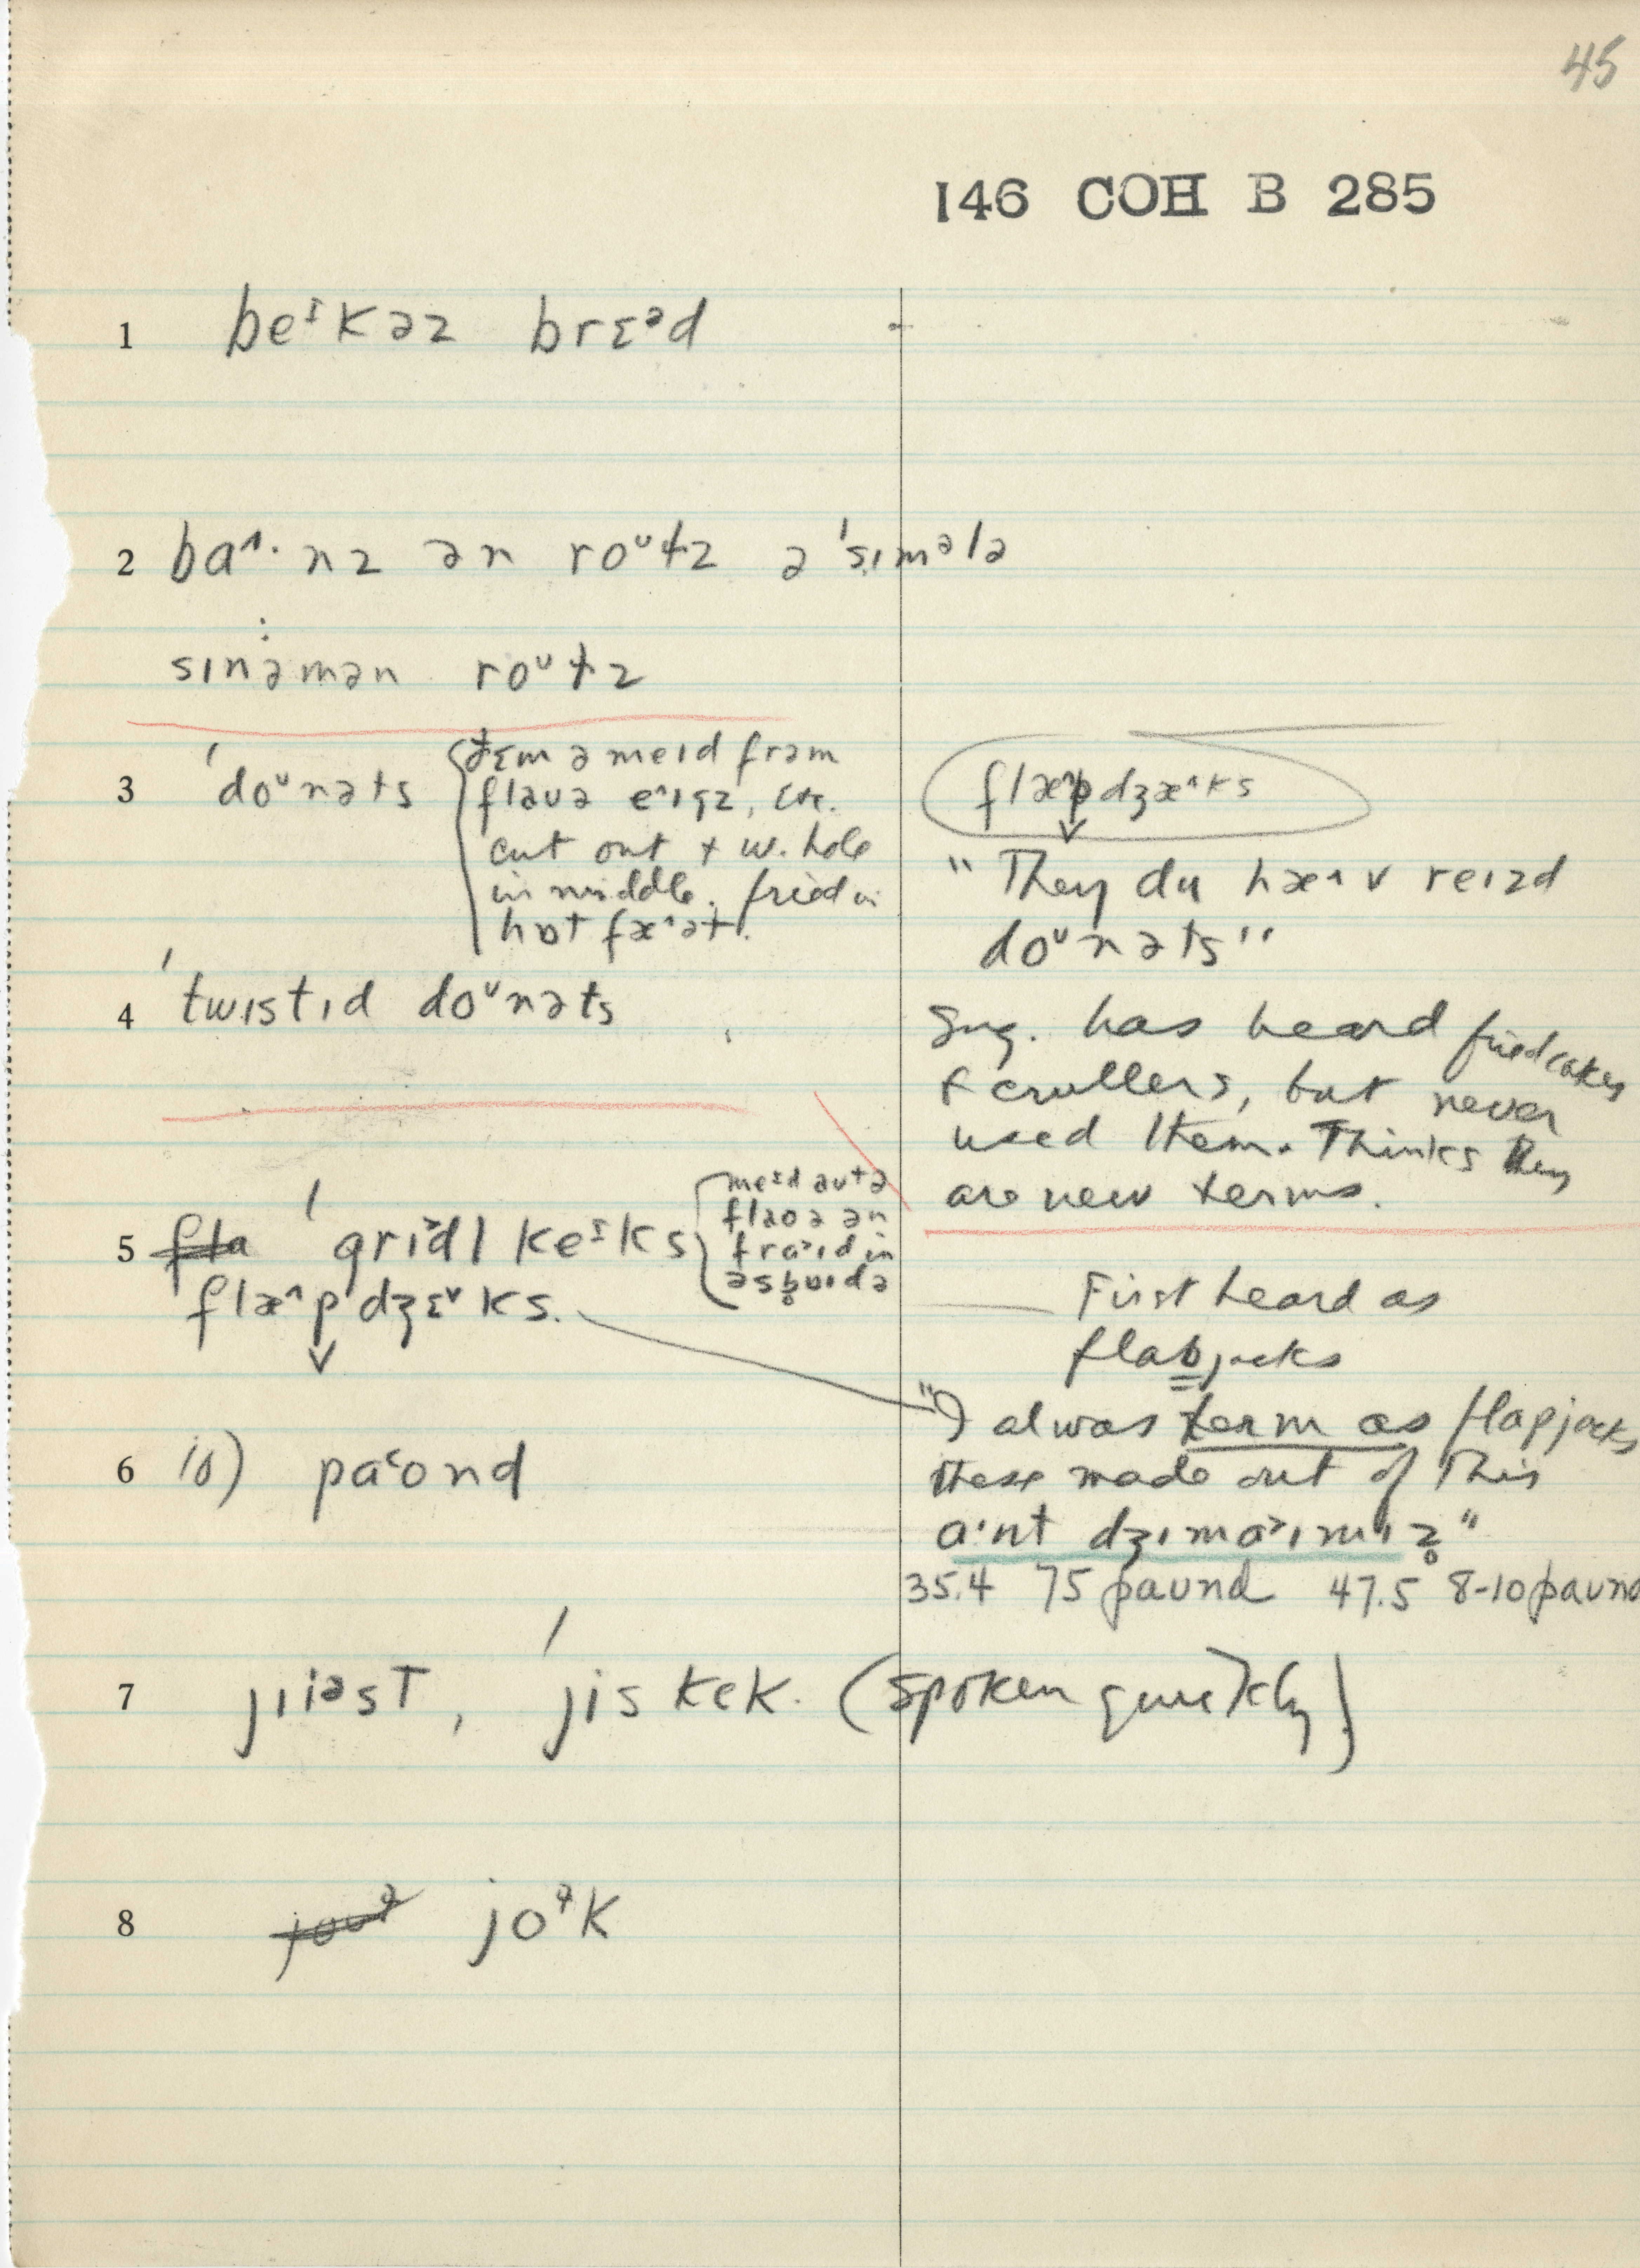 45
146 COH B 285
1 beᶦkəz brɛᵊd
2 baˑnz ən roᵘɫz ə ˈsɪmᵊlə
sɪnəmən roᵘɫz
3 ˈdoᵘnəts
ðɛm ə meɪd frəm
flaʊə eˆɪgz, etc.
cut out + w. hole
in middle. fried in
hɒt fæˆət.
flæˆpdʒæˆks
"They du hæˆv reɪzd
doᵘnəts"
4 ˈtwɪstɪd doᵘnəts
Sug. has heard friedcakes
& crullers, but never
used them. Thinks they
are new terms.
5 fla ˈgrɪdl keᶦks
meɪd aʊtə
flaoə ən
fraɪd in
flæˆpˈdʒɛˇks.
First heard as
flabjacks
"I alwas term as flapjacks
these made out of this
aˑnt dʒɪmaɪmɪz̥"
6 10) paˑond
35.4 75 paʊnd 47.5 8-10 paʊnd
7 jiiəst, ˈjis kek. (spoken quickly)
8 joᵊk